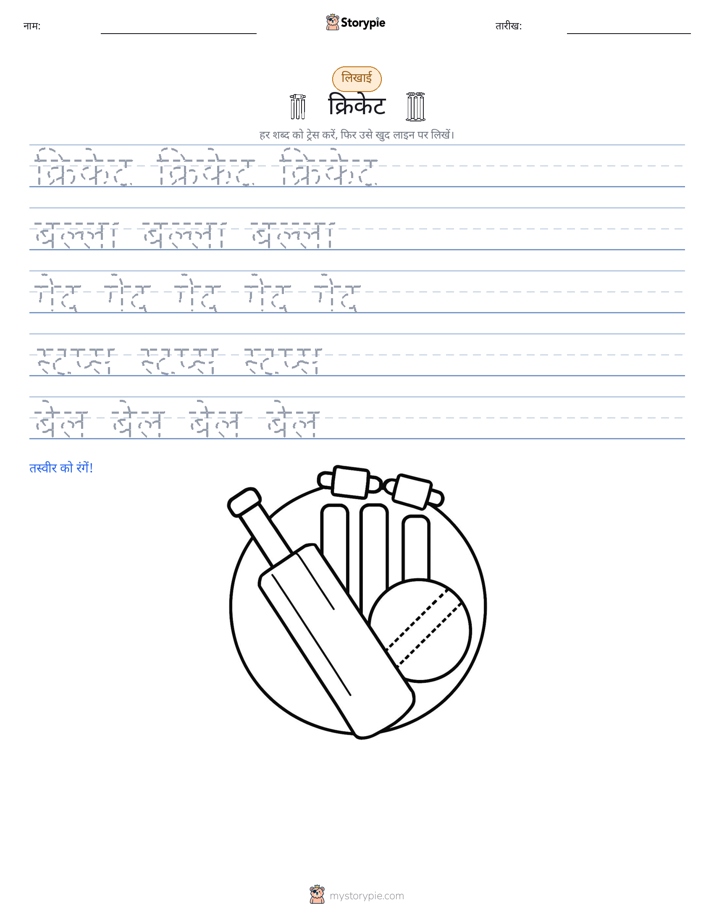 नाम:
Storypie
तारीख:
लिखाई
क्रिकेट
हर शब्द को ट्रेस करें, फिर उसे खुद लाइन पर लिखें।
क्रिकेट क्रिकेट क्रिकेट
बल्ला बल्ला बल्ला
गेंद गेंद गेंद गेंद गेंद
स्टंप्स स्टंप्स स्टंप्स
बेल बेल बेल बेल
तस्वीर को रंगें!
mystorypie.com